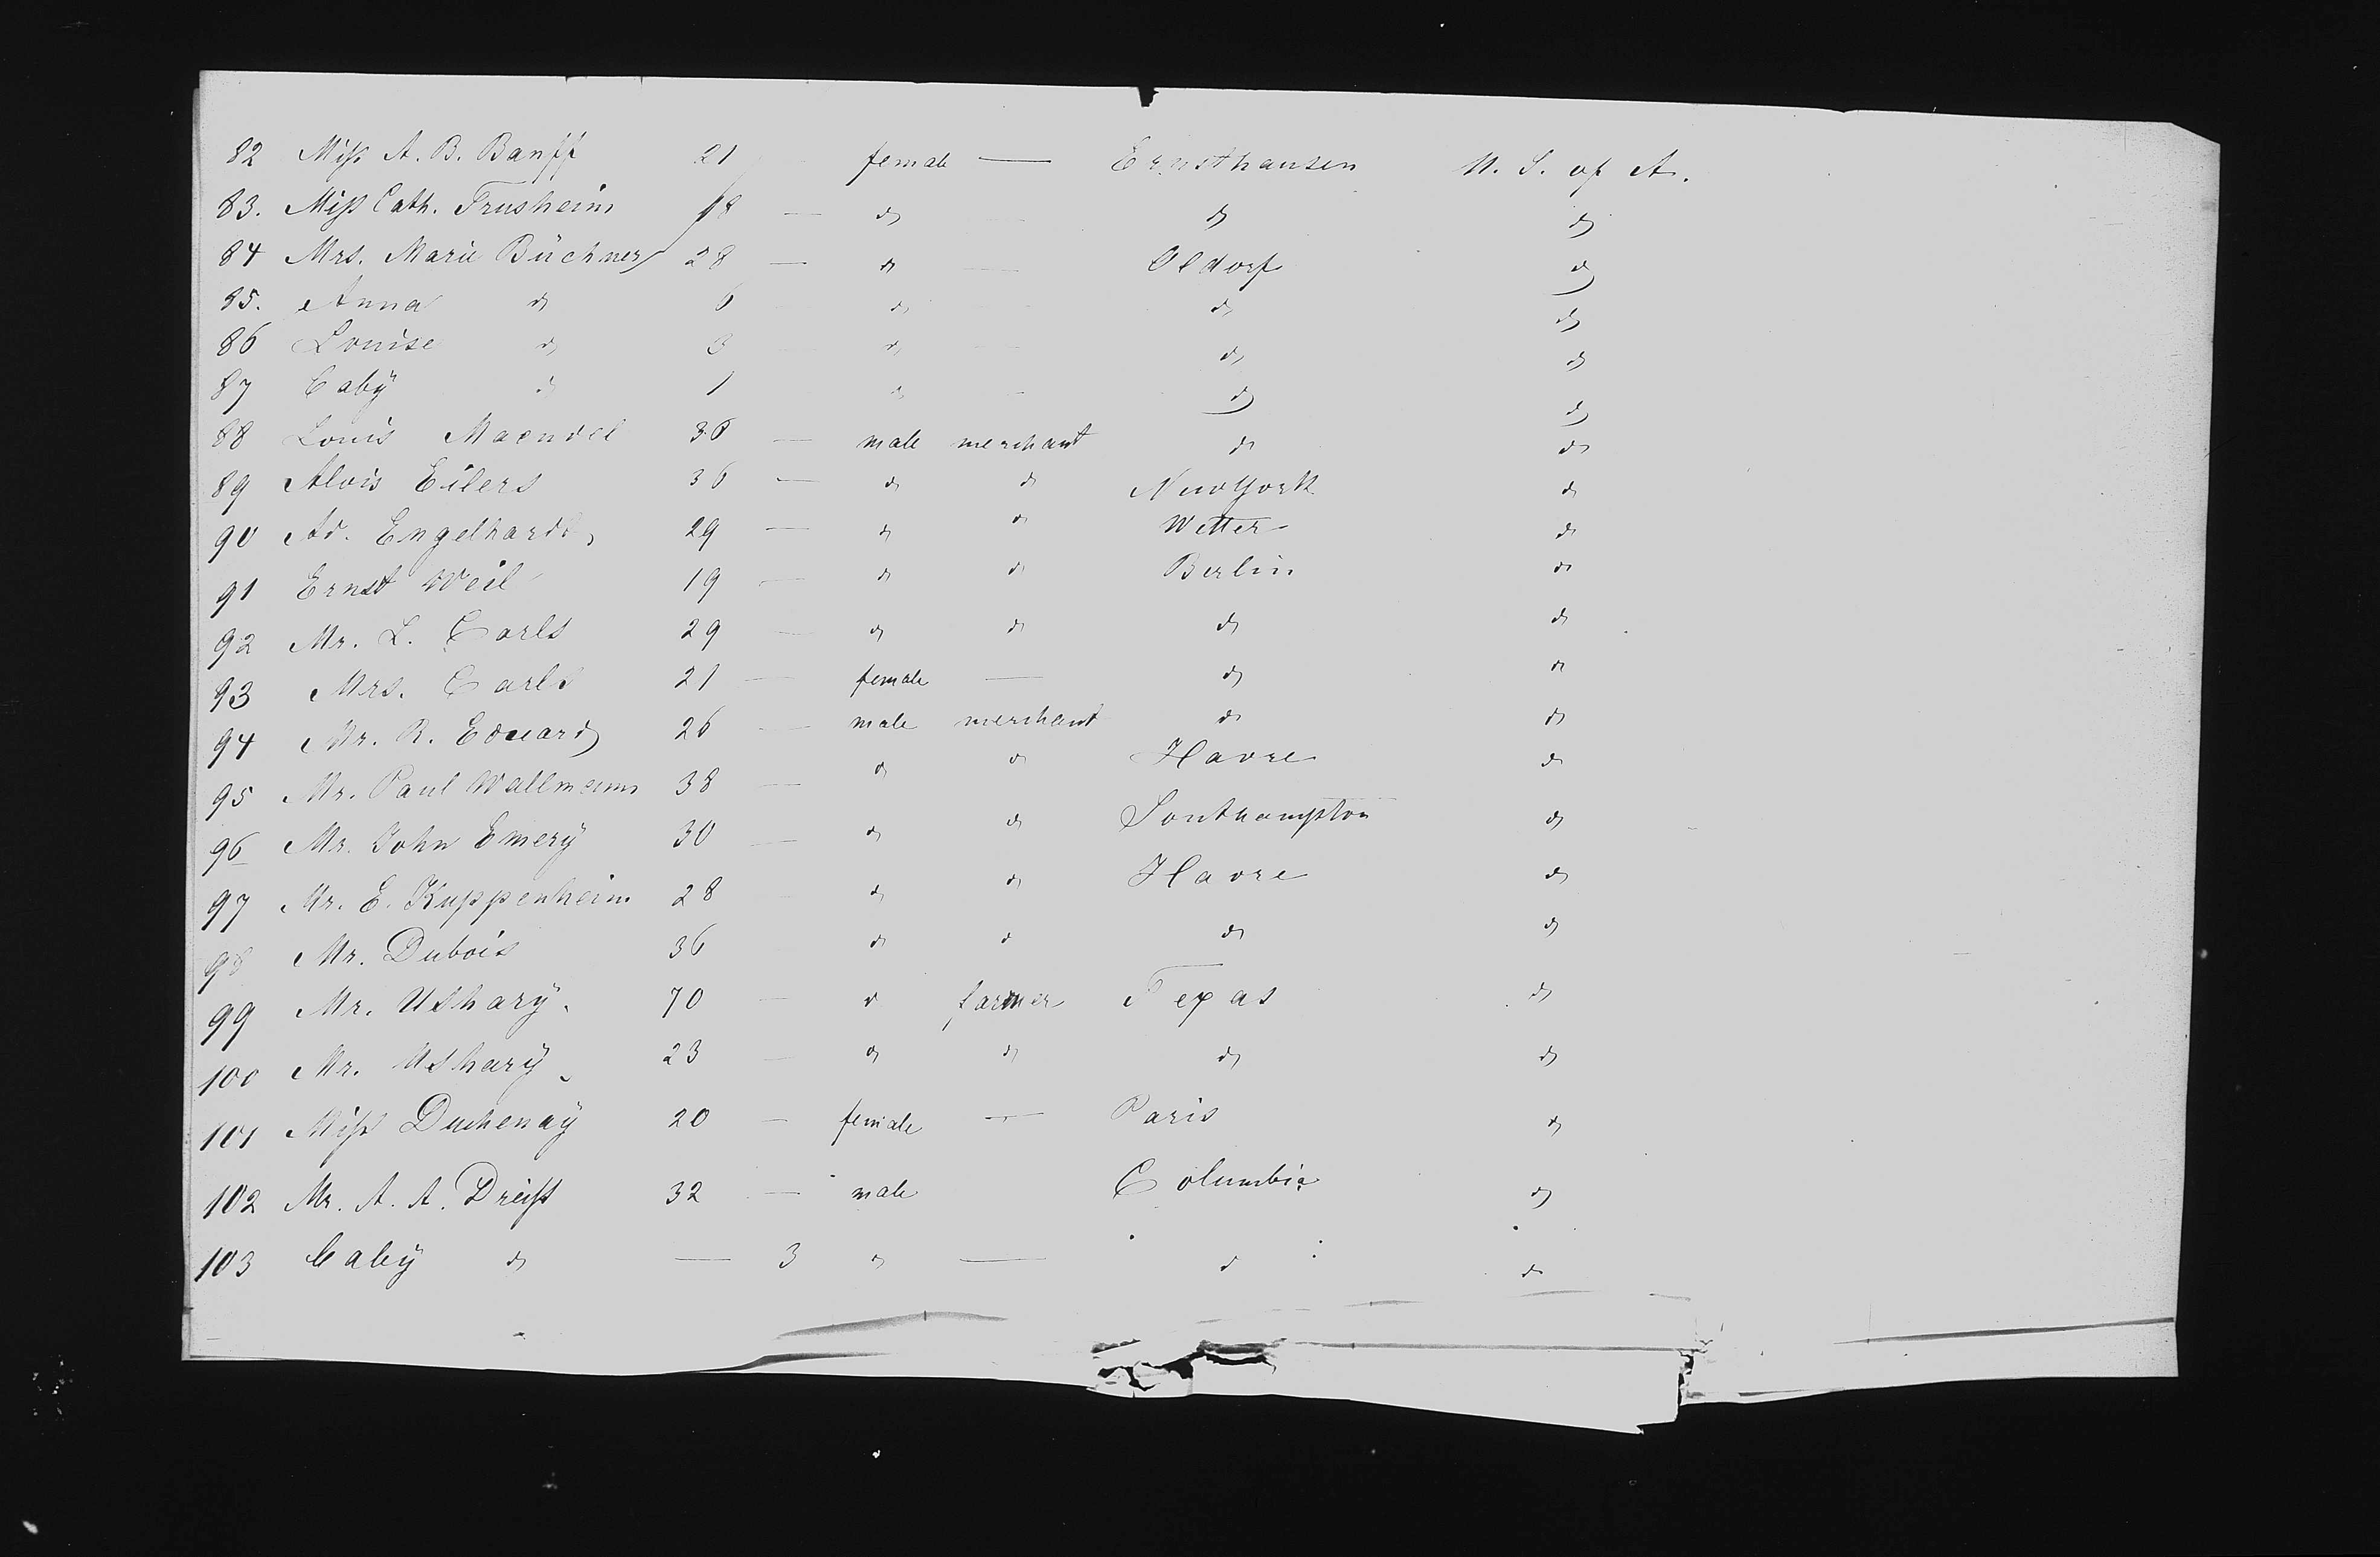 82 Miss A. B. Banff 21 female — Ernsthausen U. S. of A.
83. Miss Cath. Frusheim 18 — do do do
84 Mrs. Marie Büchner 28 — do — Oldorf do
85. Anna do 6 do do do
86 Louise do 3 do do do
87 Baby do 1 do do do
88 Louis Maendel 36 — male merchant do do
89 Alois Eilers 36 — do do New York do
90 Ad. Engelhardt 29 — do do Wetter do
91 Ernst Weil 19 — do do Berlin do
92 Mr. L. Carls 29 — do do do do
93 Mrs. Carls 21 — female — do do
94 Mr. R. Eduard 26 — male merchant do do
95 Mr. Paul Wallmann 38 — do do Havre do
96 Mr. John Emery 30 — do do Southampton do
97 Mr. E. Kuppenheim 28 do do Havre do
98 Mr. Dubois 36 do do do do
99 Mr. Ushary. 70 — do farmer Texas do
100 Mr. Ushary 23 — do do do do
101 Miss Duchenay 20 — female — Paris do
102 Mr. A. A. Dreist 32 — male Columbia do
103 Baby do — 3 do — do do